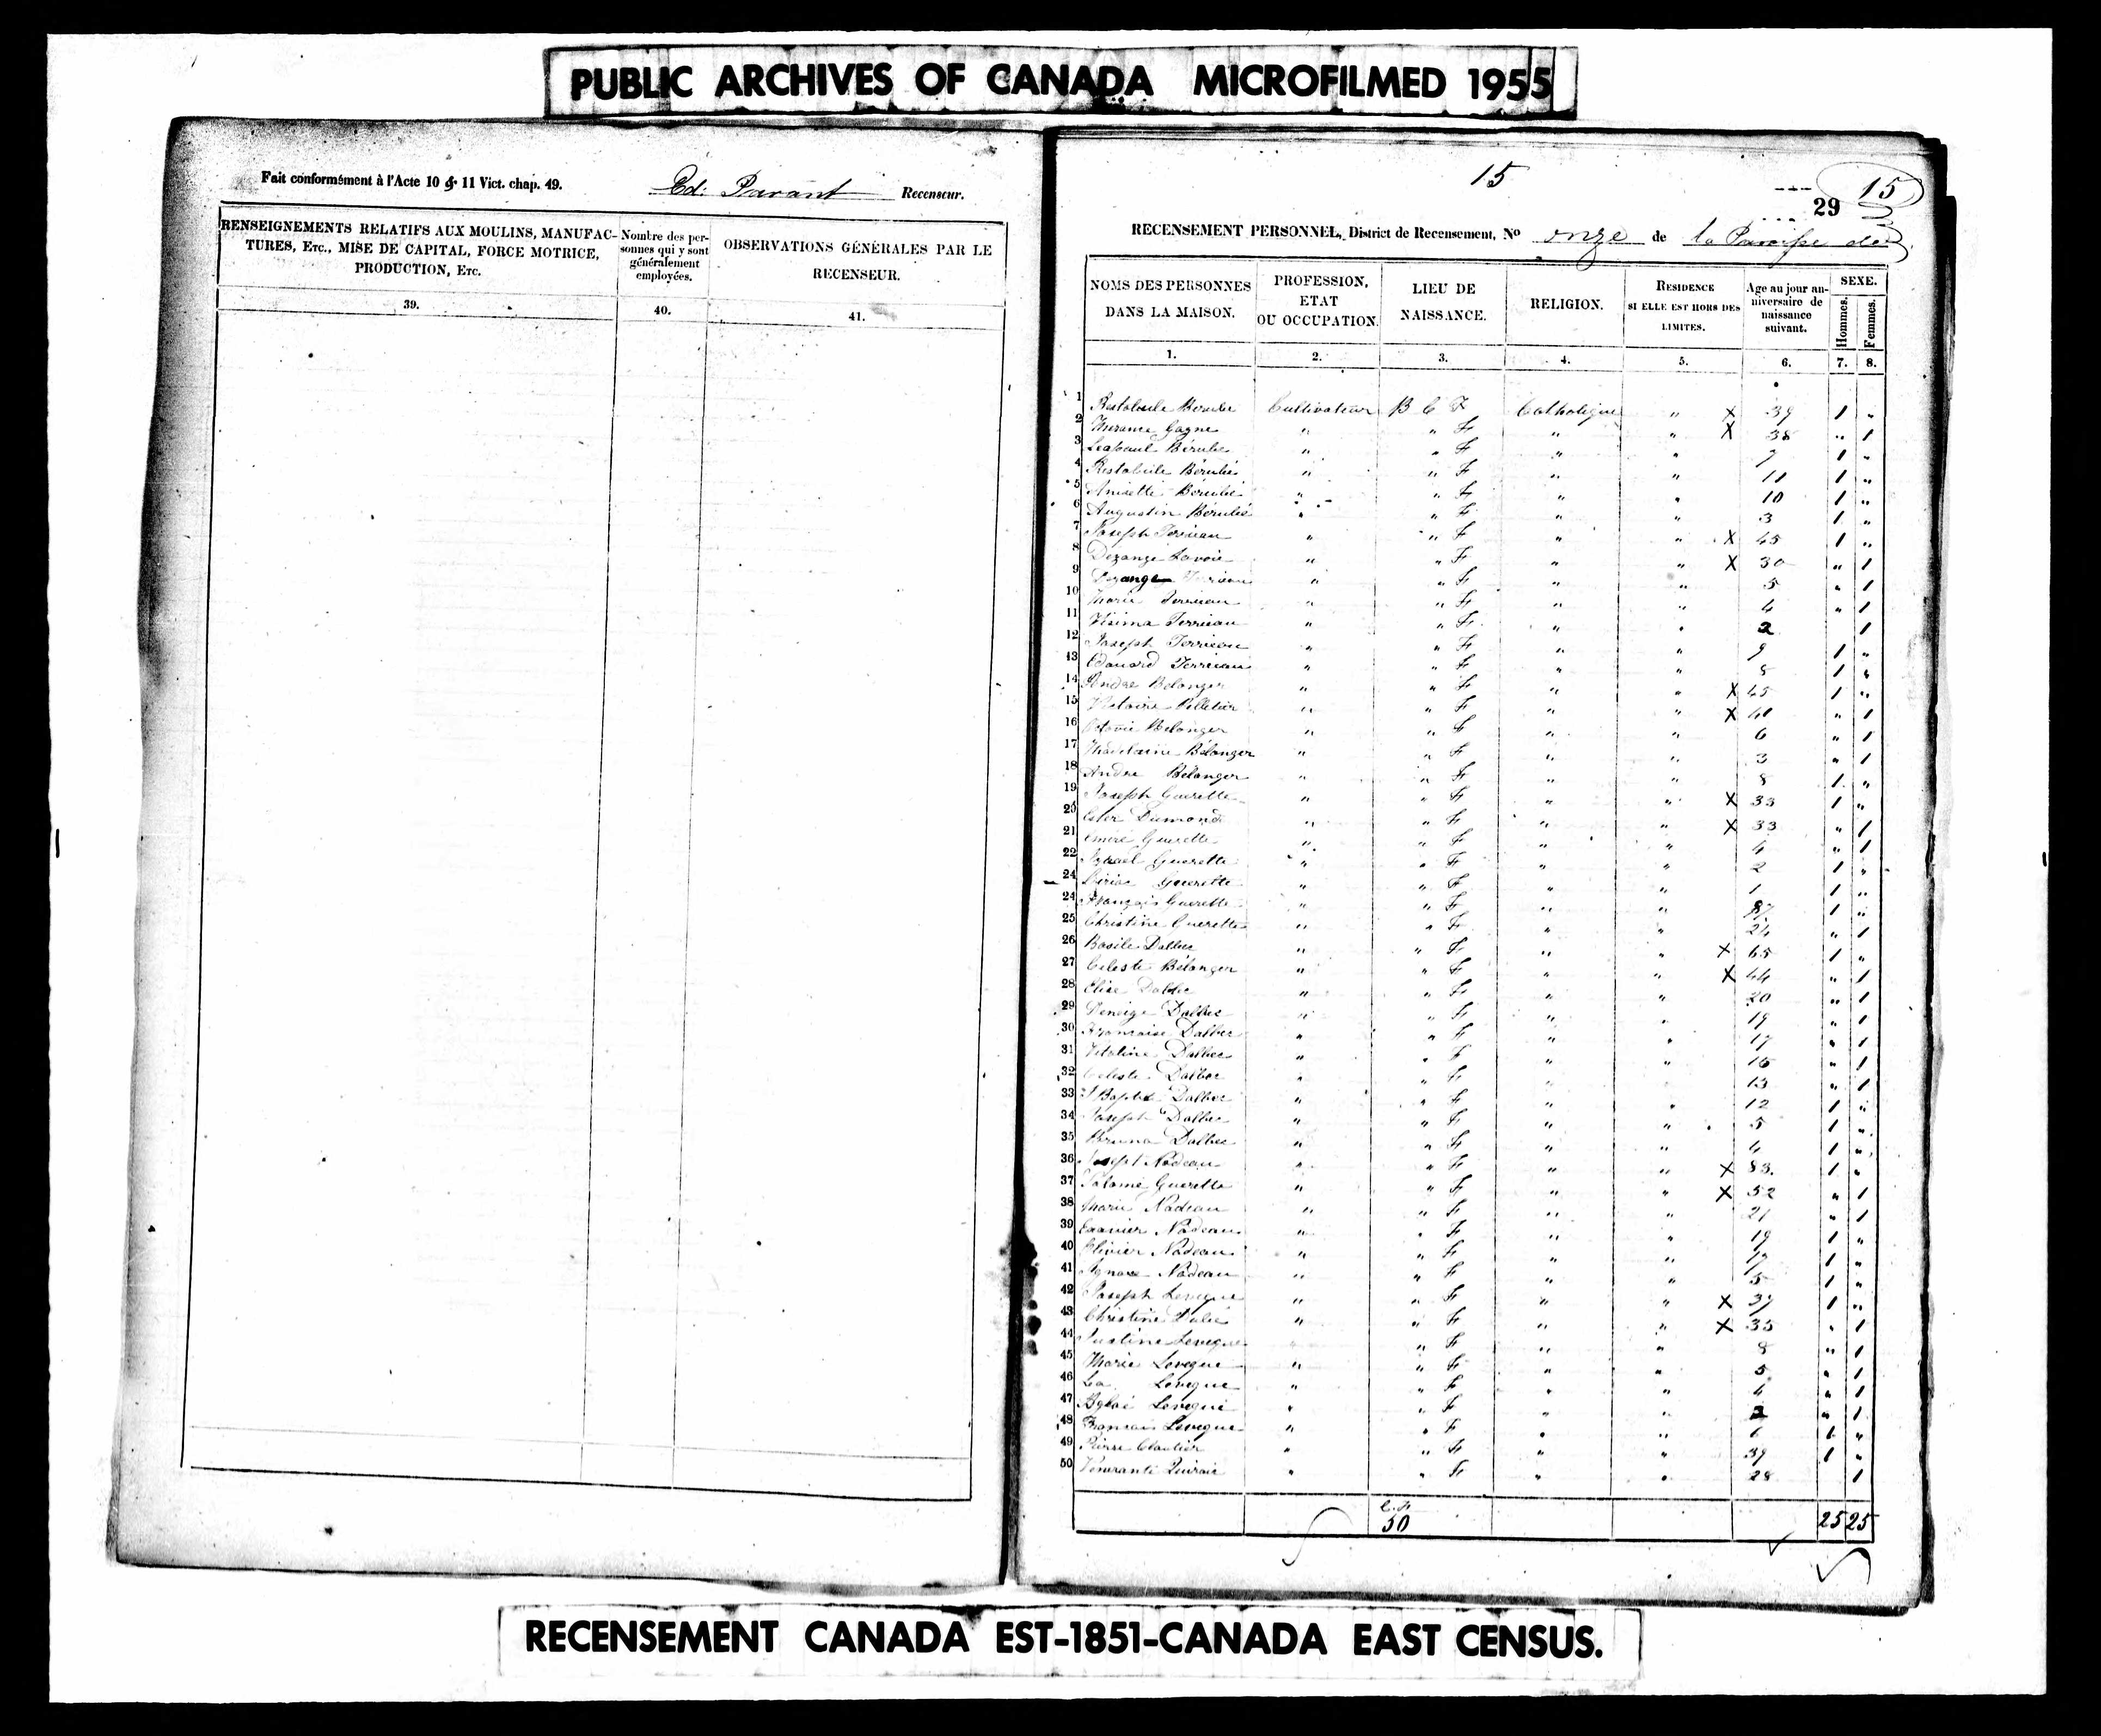 PUBLIC ARCHIVES OF CANADA MICROFILMED 1955
Fait conformément à l'Acte 10 & 11 Vict. chap. 49. Ed. Parant Recenseur.
RENSEIGNEMENTS RELATIFS AUX MOULINS, MANUFAC-
TURES, Etc., MISE DE CAPITAL, FORCE MOTRICE,
PRODUCTION, Etc.
Nombre des per-
sonnes qui y sont
généralement
employées.
OBSERVATIONS GÉNÉRALES PAR LE
RECENSEUR.
39. 40. 41.
15
15
29
RECENSEMENT PERSONNEL, District de Recensement, No onze de la Paroisse de
NOMS DES PERSONNES
DANS LA MAISON.
PROFESSION,
ETAT
OU OCCUPATION.
LIEU DE
NAISSANCE.
RELIGION.
RESIDENCE
SI ELLE EST HORS DES
LIMITES.
Age au jour an-
niversaire de
naissance
suivant.
SEXE.
Hommes.
Femmes.
1. 2. 3. 4. 5. 6. 7. 8.
1 Bérubé Cultivateur B C F Catholique " X 39 1 "
2 Gagne " " F " " X 38 " 1
3 Bérubé " " F " " 7 1 "
4 Bérubé " " F " " 11 1 "
5 Anisette Bérubé " " F " " 10 1 "
6 Augustin Bérubé " " F " " 3 1 "
7 Joseph Terrieau " " F " " X 45 1 "
8 Dezange Lavoie " " F " " X 30 " 1
9 Dezange Terrieau " " F " " 5 " 1
10 Marie Terrieau " " F " " 4 " 1
11 Terrieau " " F " " 2 1
12 Joseph Terrieau " " F " " 9 1 "
13 Edouard Terrieau " " F " " 8 1 "
14 André Bélanger " " F " " X 45 1 "
15 Victoire Pelletier " " F " " X 40 " 1
16 Octavie Bélanger " " F " " 6 " 1
17 Madelaine Bélanger " " F " " 3 " 1
18 André Bélanger " " F " " 8 1 "
19 Joseph Guerette " " F " " X 33 1 "
20 Ester Dumond " " F " " X 33 " 1
21 Guerette " " F " " 4 " 1
22 Guerette " " F " " 2 1 "
24 Guerette " " F " " 1 1 "
24 François Guerette " " F " " 1 "
25 Christine Guerette " " F " " 24 " 1
26 Basile Dalbec " " F " " X 65 1 "
27 Celeste Bélanger " " F " " X 44 " 1
28 Elise Dalbec " " F " " 20 " 1
29 Dalbec " " F " " 19 " 1
30 Francoise Dalbec " " F " " 17 " 1
31 Vitaline Dalbec " " F " " 16 " 1
32 Celeste Dalbec " " F " " 13 " 1
33 J Bapte Dalbec " " F " " 12 1 "
34 Joseph Dalbec " " F " " 5 1 "
35 Bruno Dalbec " " F " " 4 1 "
36 Joseph Nadeau " " F " " X 53 1 "
37 Salomé Guerette " " F " " X 52 " 1
38 Marie Nadeau " " F " " 21 " 1
39 Nadeau " " F " " 19 1 "
40 Olivier Nadeau " " F " " 17 1 "
41 Nadeau " " F " " 5 1 "
42 Joseph Leveque " " F " " X 37 1 "
43 Christine " " F " " X 35 " 1
44 Justine Leveque " " F " " 8 " 1
45 Marie Leveque " " F " " 5 " 1
46 Lea Leveque " " F " " 4 " 1
47 Aglaé Leveque " " F " " 2 " 1
48 François Leveque " " F " " 6 1 "
49 Pierre Cloutier " " F " " 39 1 "
50 " " F " " 28 1
C. F.
50 25 25
RECENSEMENT CANADA EST-1851-CANADA EAST CENSUS.